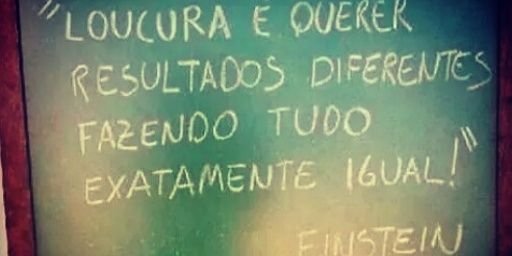 "LOUCURA É QUERER
RESULTADOS DIFERENTES
FAZENDO TUDO
EXATAMENTE IGUAL!"
EINSTEIN